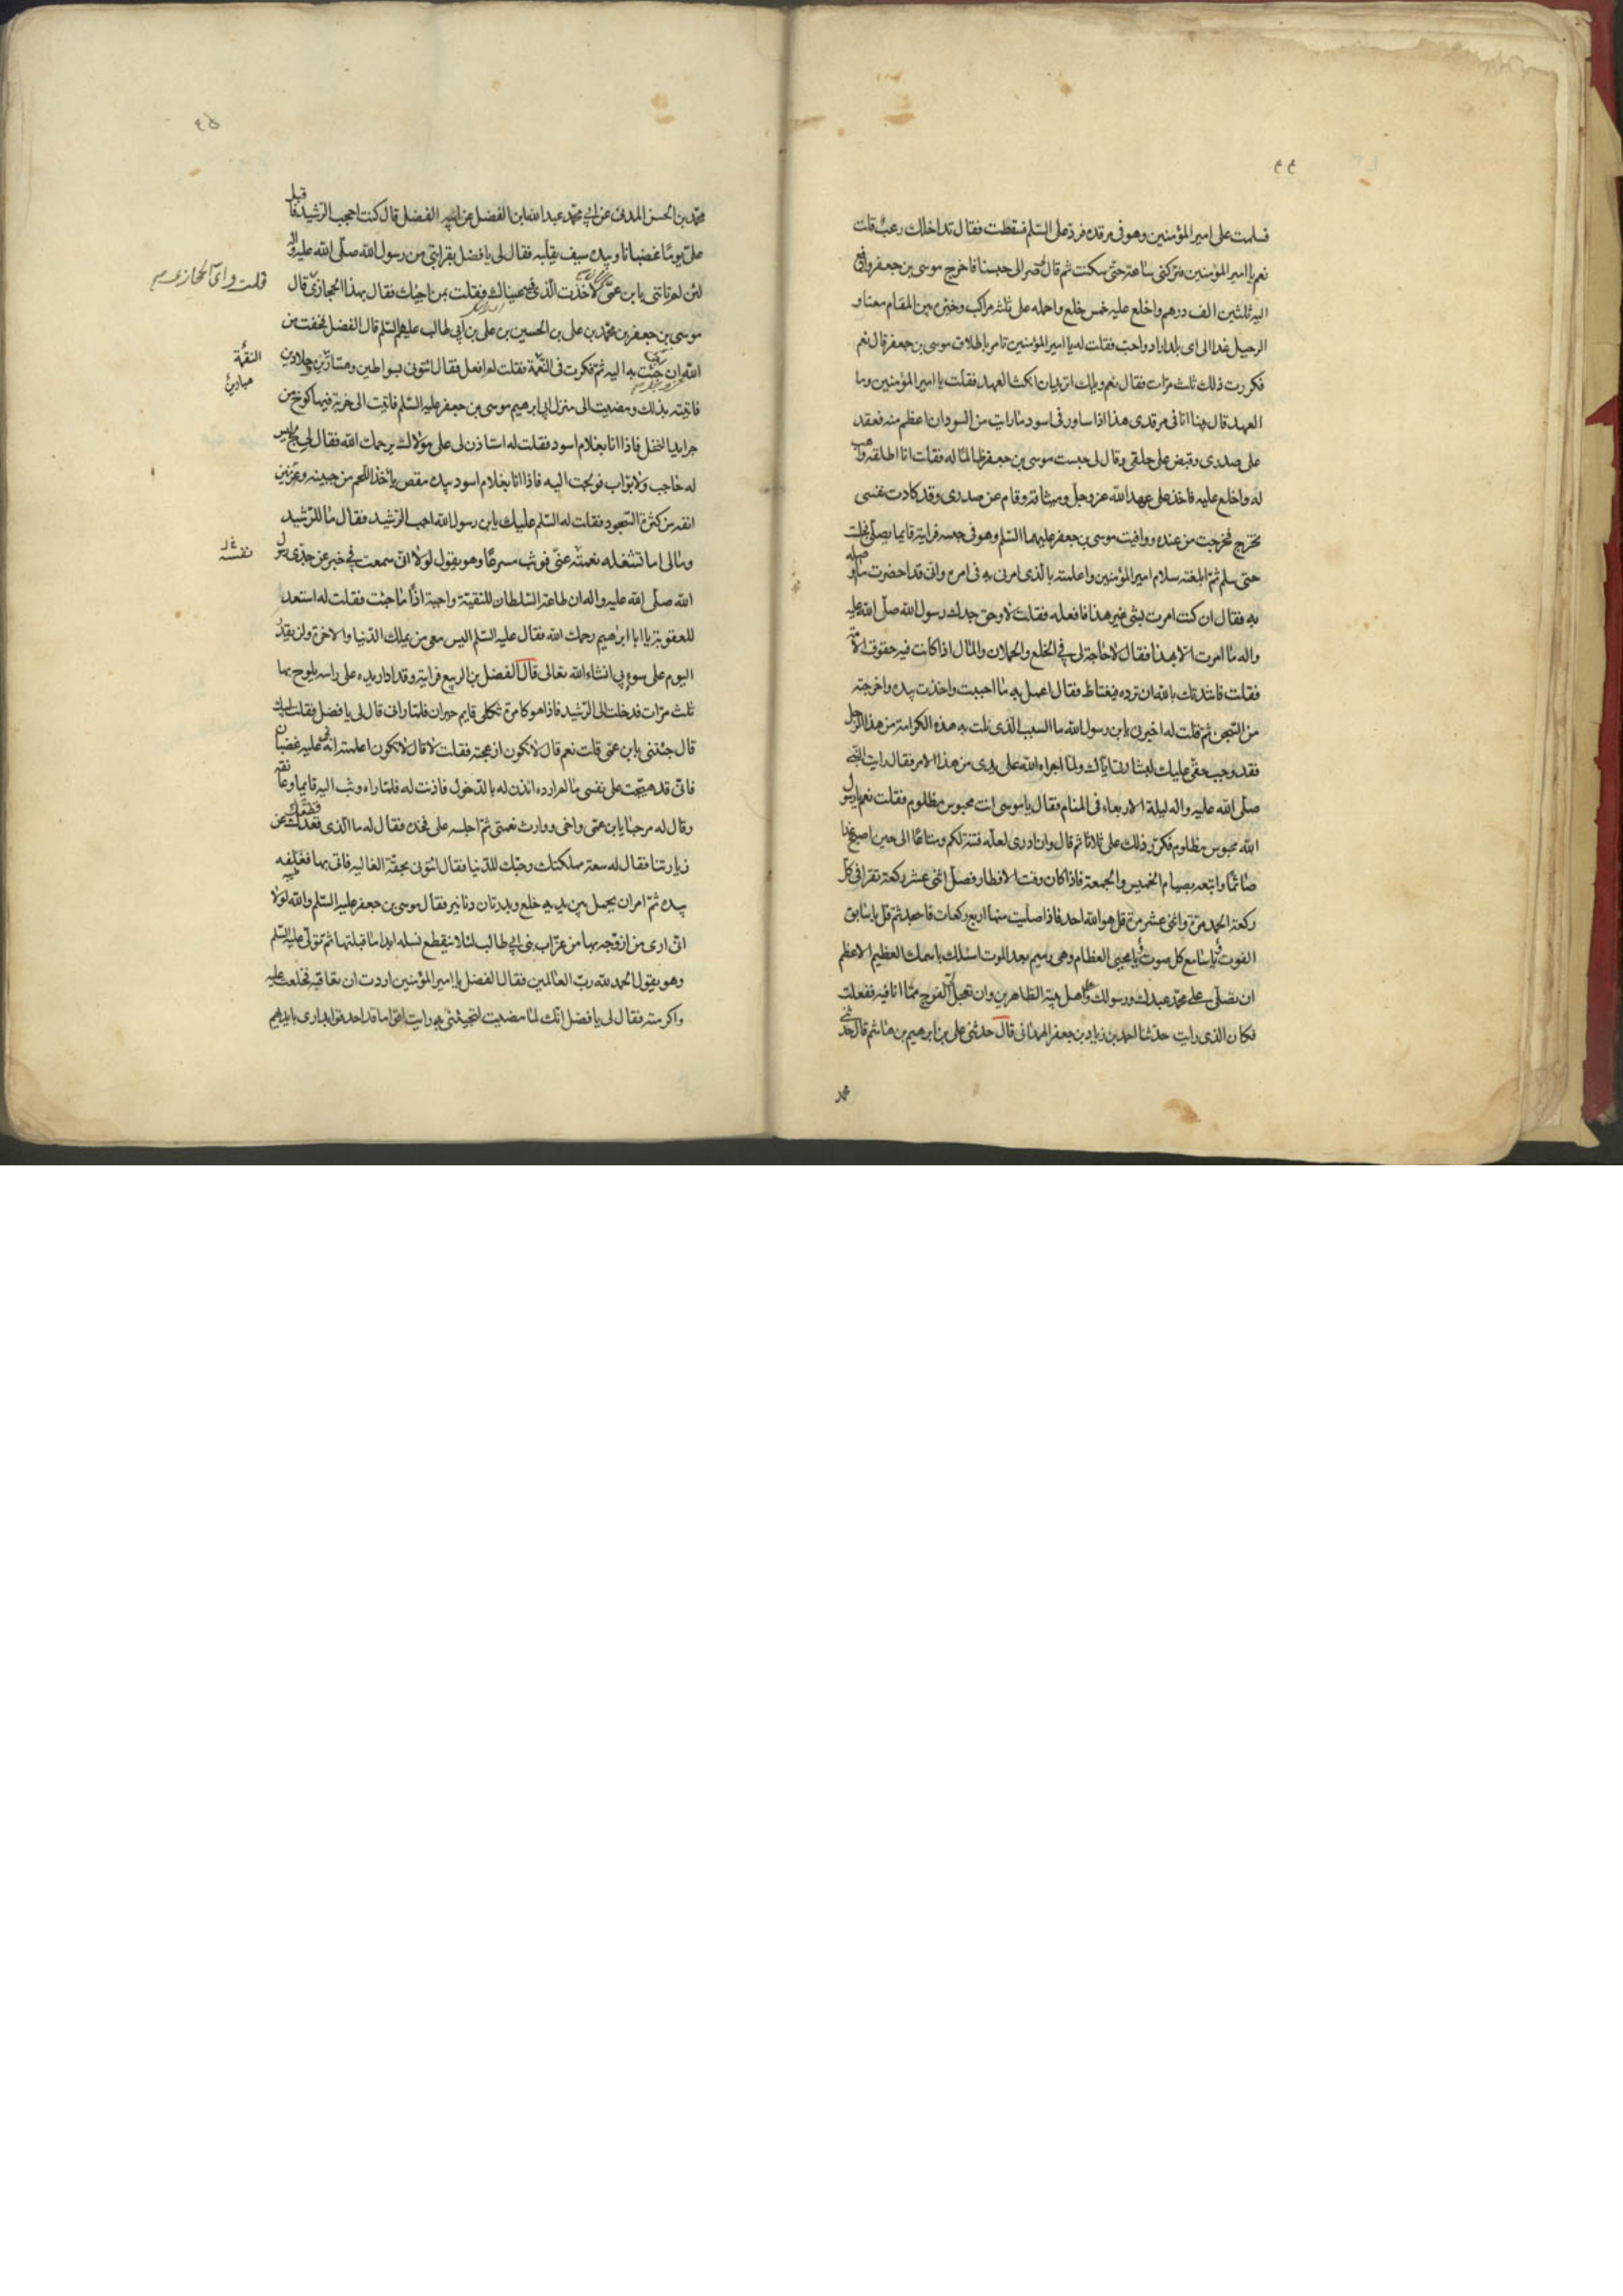 ٤٤
فسلمت على امير المؤمنين وهو فى مرقده فرد على السّلم فسقطت فقال تداخلك رعب قلت
نعم يا امير المؤمنين فتركنى ساعة حتّى سكنت ثم قال صر الى حبسنا فاخرج موسى بن جعفر وادفع
اليه ثلثين الف درهم واخلع عليه خمس خلع واحمله على ثلثة مراكب وخيّره بين المقام معنا و
الرحيل عنا الى اى بلد اراد واحب فقلت له يا امير المؤمنين تامر باطلاق موسى بن جعفر قال نعم
فكررت ذلك ثلث مرّات فقال نعم ويلك اتريد ان انكث العهد فقلت يا امير المؤمنين وما
العهد قال بينا انا فى مرقدى هذا اذ ساورنى اسود ما رايت من السودان اعظم منه فقعد
على صدرى وقبض على حلقى وقال لى حبست موسى بن جعفر ظالما له فقلت انا اطلقه واهب
له واخلع عليه فاخذ على عهد الله عز وجلّ وميثاقه وقام عن صدرى وقد كادت نفسى
تخرج فخرجت من عنده ووافيت موسى بن جعفر عليهما السّلم وهو فى حبسه فرايته قايما يصلّى فجلست
حتى سلم ثمّ ابلغته سلام امير المؤمنين واعلمته بالّذى امرنى به فى امره وانى قد احضرت ما وصله
به فقال ان كنت امرت بشئ غير هذا فافعله فقلت لا وحق جدك رسول الله صلّى الله عليه
واله ما امرت الّا بهذا فقال لا حاجة لى فى الخلع والحملان والمال اذا كانت فيه حقوق الامّة
فقلت ناشدتك بالله ان ترده فيغتاظ فقال اعمل به ما احببت واخذت بيده واخرجته
من السّجن ثمّ قلت له اخبرنى يا بن رسول الله ما السبب الّذى نلت به هذه الكرامة من هذا الرّجل
فقد وجب حقّى عليك لبشارتى ايّاك ولما اجراه الله على يدى من هذا الامر فقال رايت النّبى
صلّى الله عليه واله ليلة الاربعاء فى المنام فقال يا موسى انت محبوس مظلوم فقلت نعم يا رسول
الله محبوس مظلوم فكرّر ذلك على ثلاثا ثمّ قال وان ادرى لعلّه فتنة لكم ومتاع الى حين اصبح غدا
صائما واتبعه بصيام الخميس والجمعة فاذا كان وقت الافطار فصلّ اثنى عشر ركعة تقرا فى كلّ
ركعة الحمد مرّة واثنى عشر مرّة قل هو الله احد فاذا صلّيت منها اربع ركعات فاسجد ثمّ قل يا سابق
الفوت ويا سامع كل صوت ويا محيى العظام وهى رميم بعد الموت اسئلك باسمك العظيم الاعظم
ان تصلّى على محمّد عبدك ورسولك وعلى اهل بيته الطّاهرين وان تعجل لى الفرج ممّا انا فيه ففعلت
فكان الذى رايت حدّثنا احمد بن زياد بن جعفر الهمدانى قال حدثنى على بن ابرهيم بن هاشم قال حدّثنى
محمّد
٤٥
محمّد بن الحسن المدنى عن ابى محمّد عبدالله ابن الفضل عن ابيه الفضل قال كنت احجب الرّشيد فاقبل
علىّ يوما غضبانا وبيده سيف يقلّبه فقال لى يا فضل بقرابتى من رسول الله صلّى الله عليه واله
لئن لم تاتنى بابن عمّى لاخذت الّذى فيه عيناك فقلت بمن اجيئك فقال بهذا الحجازىّ قال
قلت واى الحجازى
موسى بن جعفر بن محمّد بن على بن الحسين بن على بن ابى طالب عليهم السّلم قال الفضل فخفت من
الله ان جئت به اليه ثمّ فكرت فى النّقمة فقلت له افعل فقال ائتونى بسواطين وهسّارين وجلادين
النقمة
فاتيته بذلك ومضيت الى منزل ابى ابرهيم موسى بن جعفر عليه السّلم فاتيت الى خربة فيها كوخ من
جرايد النخل فاذا انا بغلام اسود فقلت له استاذن لى على مولاك يرحمك الله فقال لى لج ليس
له حاجب ولا بوّاب فولجت اليه فاذا انا بغلام اسود بيده مقص ياخذ اللّحم من جبينه وعرنين
انفه من كثرة السّجود فقلت له السّلم عليك يابن رسول الله اجب الرّشيد فقال ما للرّشيد
ومالى اما تشغله نعمته عنّى فوثب مسرعا وهو يقول لولا انّى سمعت فى خبر عن جدّى رسول
نفسه
الله صلّى الله عليه واله ان طاعة السّلطان للتّقيّة واجبة اذًا ما جئت فقلت له استعد
للعقوبة يا ابا ابرهيم رحمك الله فقال عليه السّلم اليس معى من يملك الدّنيا والاخرة ولن يقدر
اليوم على سوء بى انشاء الله تعالى قال الفضل بن الربيع فرايته وقد ادار يده على راسه يلوح بها
ثلث مرّات فدخلت الى الرّشيد فاذا هو كامرة ثكلى قايم حيران فلمّا رانى قال لى يا فضل فقلت لبيك
قال جئتنى بابن عمّى قلت نعم قال لا تكون ازعجته فقلت لا قال لا تكون اعلمته انّى عليه غضبان
فانّى قد هيّجت على نفسى ما لم ارده ائذن له بالدّخول فاذنت له فلمّا راه وثب اليه قايما وعانقه
وقال له مرحبا يابن عمّى واخى ووارث نعمتى ثمّ اجلسه على فخذه فقال له ما الّذى قطعك عن
زيارتنا فقال له سعة مملكتك وحبّك للدّنيا فقال ائتونى بحقّة الغالية فاتى بها فغلّفه
بيده ثمّ امر ان يحمل بين يديه خلع وبدرتان دنانير فقال موسى بن جعفر عليه السّلم والله لولا
انّى ارى من ازوّجه بها من عزّاب بنى ابى طالب لئلّا ينقطع نسله ابدا ما قبلتها ثمّ تولّى عليه السّلم
وهو يقول الحمد لله ربّ العالمين فقال الفضل يا امير المؤمنين اردت ان تعاقبه فخلعت عليه
واكرمته فقال لى يا فضل انّك لمّا مضيت لتجيئنى به رايت اقواما قد احدقوا بدارى بايديهم